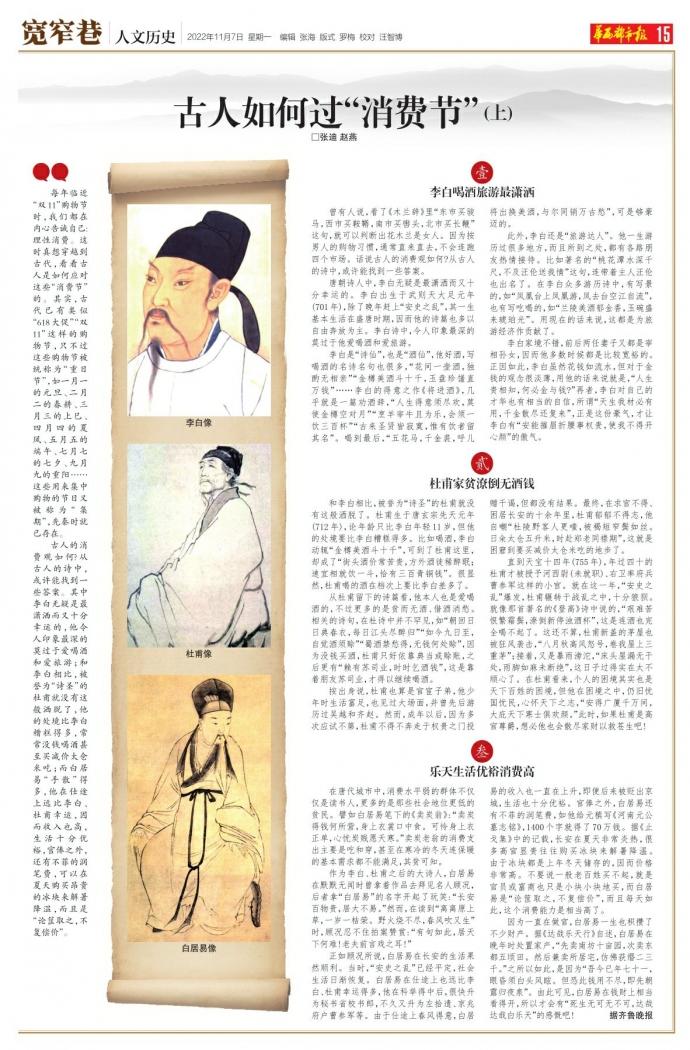 宽窄巷
人文历史
2022年11月7日 星期一 编辑 张海 版式 罗梅 校对 汪智博
华西都市报 15
古人如何过“消费节”(上)
□张迪 赵燕
每年临近
“双11”购物节
时,我们都在
内心告诫自己:
理性消费。这
时真想穿越到
古代,看看古
人是如何应对
这些“消费节”
的。其实,古
代已有类似
“618大促”“双
11”这样的购
物节,只不过
这些购物节被
统称为“重日
节”,如一月一
的元旦、二月
二的春耕、三
月三的上巳、
四月四的夏
风、五月五的
端午、七月七
的七夕、九月
九的重阳……
这些用来集中
购物的节日又
被称为“集
期”,先秦时就
已存在。
古人的消
费观如何?从
古人的诗中,
或许能找到一
些答案。其中
李白无疑是最
潇洒而又十分
幸运的,他令
人印象最深的
莫过于爱喝酒
和爱旅游;和
李白相比,被
誉为“诗圣”的
杜甫就没有这
般洒脱了,他
的处境比李白
糟糕得多,常
常没钱喝酒甚
至买减价太仓
米吃;而白居
易“手散”得
多,他在仕途
上远比李白、
杜甫幸运,因
而收入也高,
生活十分优
裕,官俸之外,
还有不菲的润
笔费,可以在
夏天购买昂贵
的冰块来解暑
降温,而且是
“论筐取之,不
复偿价”。
李白像
杜甫像
白居易像
壹
李白喝酒旅游最潇洒
曾有人说,看了《木兰辞》里“东市买骏
马,西市买鞍鞯,南市买辔头,北市买长鞭”
这句,就可以判断出花木兰是女人。因为按
男人的购物习惯,通常直来直去,不会连跑
四个市场。话说古人的消费观如何?从古人
的诗中,或许能找到一些答案。
唐朝诗人中,李白无疑是最潇洒而又十
分幸运的。李白出生于武则天大足元年
(701年),除了晚年赶上“安史之乱”,其一生
基本生活在盛唐时期,因而他的诗篇也多以
自由奔放为主。李白诗中,令人印象最深的
莫过于他爱喝酒和爱旅游。
李白是“诗仙”,也是“酒仙”,他好酒,写
喝酒的名诗名句也很多,“花间一壶酒,独
酌无相亲”“金樽美酒斗十千,玉盘珍馐直
万钱”……李白的得意之作《将进酒》,几
乎就是一篇劝酒辞,“人生得意须尽欢,莫
使金樽空对月”“烹羊宰牛且为乐,会须一
饮三百杯”“古来圣贤皆寂寞,惟有饮者留
其名”。喝到最后,“五花马,千金裘,呼儿
将出换美酒,与尔同销万古愁”,可是够豪
迈的。
此外,李白还是“旅游达人”。他一生游
历过很多地方,而且所到之处,都有各路朋
友热情接待。比如著名的“桃花潭水深千
尺,不及汪伦送我情”这句,连带着主人汪伦
也出名了。在李白众多游历诗中,有写景
的,如“凤凰台上凤凰游,凤去台空江自流”,
也有写吃喝的,如“兰陵美酒郁金香,玉碗盛
来琥珀光”。用现在的话来说,这都是为旅
游经济作贡献了。
李白家境不错,前后两任妻子又都是宰
相孙女,因而他多数时候都是比较宽裕的。
正因如此,李白虽然花钱如流水,但对于金
钱的观念很淡薄,用他的话来说就是,“人生
贵相知,何必金与钱?”再者,李白对自己的
才华也有相当的自信,所谓“天生我材必有
用,千金散尽还复来”,正是这份豪气,才让
李白有“安能摧眉折腰事权贵,使我不得开
心颜”的傲气。
贰
杜甫家贫潦倒无酒钱
和李白相比,被誉为“诗圣”的杜甫就没
有这般洒脱了。杜甫生于唐玄宗先天元年
(712年),论年龄只比李白年轻11岁,但他
的处境要比李白糟糕得多。比如喝酒,李白
动辄“金樽美酒斗十千”,可到了杜甫这里,
却成了“街头酒价常苦贵,方外酒徒稀醉眠;
速宜相就饮一斗,恰有三百青铜钱”。很显
然,杜甫喝的酒在档次上要比李白差多了。
从杜甫留下的诗篇看,他本人也是爱喝
酒的,不过更多的是贫而无酒、借酒消愁。
相关的诗句,在杜诗中并不罕见,如“朝回日
日典春衣,每日江头尽醉归”“如今九日至,
自觉酒须赊”“蜀酒禁愁得,无钱何处赊”,因
为没钱买酒,杜甫只好依靠典当或赊账,之
后更有“赖有苏司业,时时乞酒钱”,这是靠
着朋友苏司业,才得以继续喝酒。
按出身说,杜甫也算是官宦子弟,他少
年时生活富足,也见过大场面,并曾先后游
历过吴越和齐赵。然而,成年以后,因为多
次应试不第,杜甫不得不奔走于权贵之门投
赠干谒,但都没有结果。最终,在求官不得、
困居长安的十余年里,杜甫郁郁不得志,他
自嘲“杜陵野客人更嗤,被褐短窄鬓如丝。
日籴太仓五升米,时赴郑老同襟期”,这就是
困窘到要买减价太仓米吃的地步了。
直到天宝十四年(755年),年过四十的
杜甫才被授予河西尉(未就职)、右卫率府兵
曹参军这样的小官。就在这一年,“安史之
乱”爆发,杜甫辗转于战乱之中,十分狼狈。
就像那首著名的《登高》诗中说的,“艰难苦
恨繁霜鬓,潦倒新停浊酒杯”,这是连酒也完
全喝不起了。这还不算,杜甫新盖的茅屋也
被狂风袭击,“八月秋高风怒号,卷我屋上三
重茅”;接着,又是暴雨滂沱,“床头屋漏无干
处,雨脚如麻未断绝”,这日子过得实在太不
顺心了。在杜甫看来,个人的困境其实也是
天下百姓的困境,但他在困境之中,仍旧忧
国忧民,心怀天下之志,“安得广厦千万间,
大庇天下寒士俱欢颜。”此时,如果杜甫是高
官尊爵,想必他也会散尽家财以救苍生吧!
叁
乐天生活优裕消费高
在唐代城市中,消费水平弱的群体不仅
仅是读书人,更多的是那些社会地位更低的
贫民。譬如白居易笔下的《卖炭翁》:“卖炭
得钱何所营,身上衣裳口中食。可怜身上衣
正单,心忧炭贱愿天寒。”卖炭老翁的消费支
出主要是吃和穿,甚至在寒冷的冬天连保暖
的基本需求都不能满足,其贫可知。
作为李白、杜甫之后的大诗人,白居易
在默默无闻时曾拿着作品去拜见名人顾况,
后者拿“白居易”的名字开起了玩笑:“长安
百物贵,居大不易。”然而,在读到“离离原上
草,一岁一枯荣。野火烧不尽,春风吹又生”
时,顾况忍不住拍案赞赏:“有句如此,居天
下何难!老夫前言戏之耳!”
正如顾况所说,白居易在长安的生活果
然顺利。当时,“安史之乱”已经平定,社会
生活日渐恢复。白居易在仕途上也远比李
白、杜甫幸运得多,他在科举得中后,很快升
为秘书省校书郎,不久又升为左拾遗、京兆
府户曹参军等。由于仕途上春风得意,白居
易的收入也一直在上升,即便后来被贬出京
城,生活也十分优裕。官俸之外,白居易还
有不菲的润笔费,如他给元稹写《河南元公
墓志铭》,1400个字就得了70万钱。据《止
戈集》中的记载,长安在夏天非常炎热,很
多高官显贵往往购买冰块来解暑降温。
由于冰块都是上年冬天储存的,因而价格
非常高。不要说一般老百姓买不起,就是
官员或富商也只是小块小块地买,而白居
易是“论筐取之,不复偿价”,而且每天如
此,这个消费能力是相当高了。
因为一直在做官,白居易一生也积攒了
不少财产。据《达哉乐天行》自述,白居易在
晚年时处置家产,“先卖南坊十亩园,次卖东
都五顷田。然后兼卖所居宅,仿佛获缗二三
千。”之所以如此,是因为“吾今已年七十一,
眼昏须白头风眩。但恐此钱用不尽,即先朝
露归夜泉”。由此可见,白居易在钱财上相当
看得开,所以才会有“死生无可无不可,达哉
达哉白乐天”的感慨吧!
据齐鲁晚报